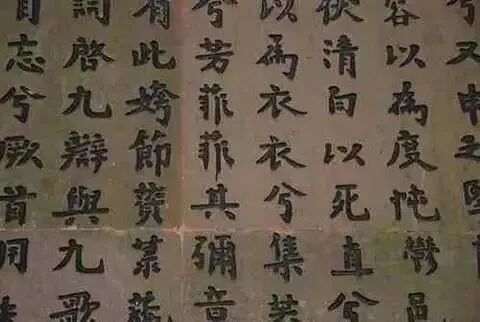 兮又申之
容以為度忳鬱邑
伏清白以死直兮
以為衣衣兮集芙
兮芳菲菲其彌章
有此姱節薋菉葹
詞啓九辯與九歌
自志兮厥首